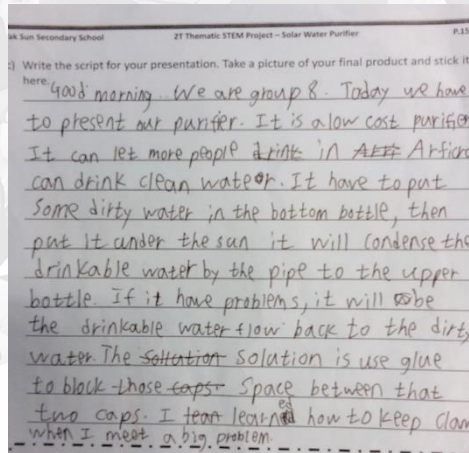 ak Sun Secondary School 2T Thematic STEM Project – Solar Water Purifier P.15
:) Write the script for your presentation. Take a picture of your final product and stick it
here.
Good morning. We are group 8. Today we have
to present our purifier. It is a low cost purifier
It can let more people drink in Arficra
can drink clean wateor. It have to put
some dirty water in the bottom bottle, then
put it under the sun it will condense the
drinkable water by the pipe to the upper
bottle. If it have problems, it will be
the drinkable water flow back to the dirty
water. The Sollcation solution is use glue
to block those caps space between that
two caps. I learned how to keep clam
when I meet a big problem.